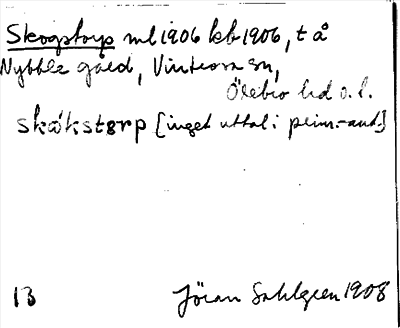 Skogstorp ml 1906 kb 1906, t å
Nybble gård, Vintrosa sn,
Örebro hd o. l.
skókstɵrp [inget uttal i prim.-ant.]
13 Jöran Sahlgren 1908